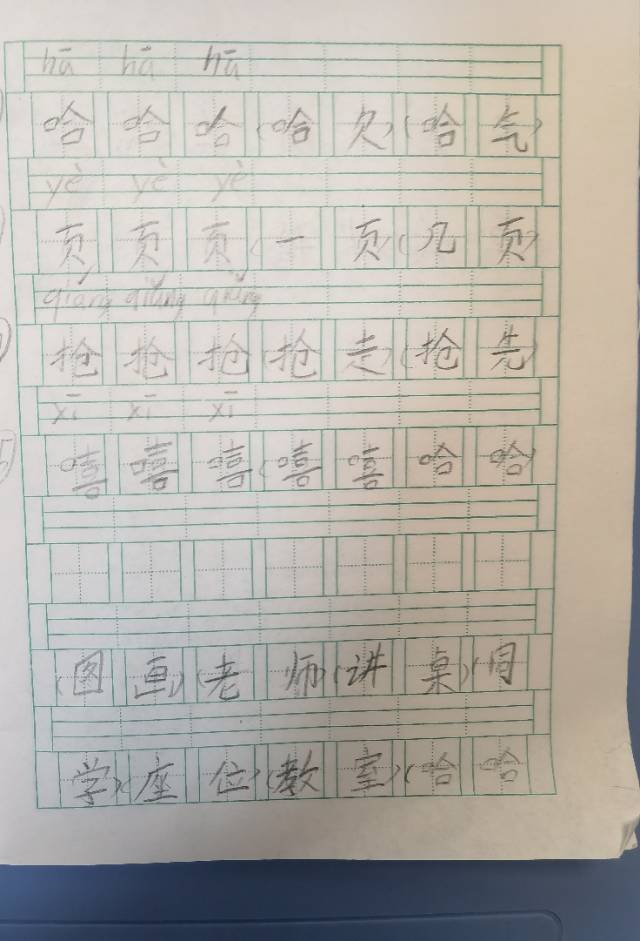 hā hā hā
哈哈哈(哈欠)(哈气)
yè yè yè
页页页(一页)(几页)
qiǎng qiǎng qiǎng
抢抢抢(抢走)(抢先)
xī xī xī
嘻嘻嘻(嘻嘻哈哈)
(图画)(老师)(讲桌)(同
学)(座位)(教室)(哈哈